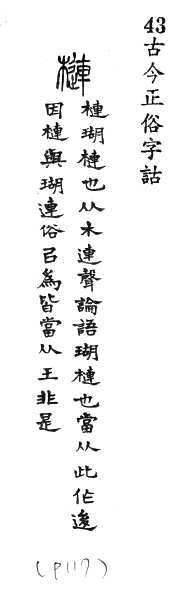 43古今正俗字詁
槤
槤瑚槤也从木連聲論語瑚槤也當从此作後
因槤與瑚連俗㠯為皆當从王非是
(P117)